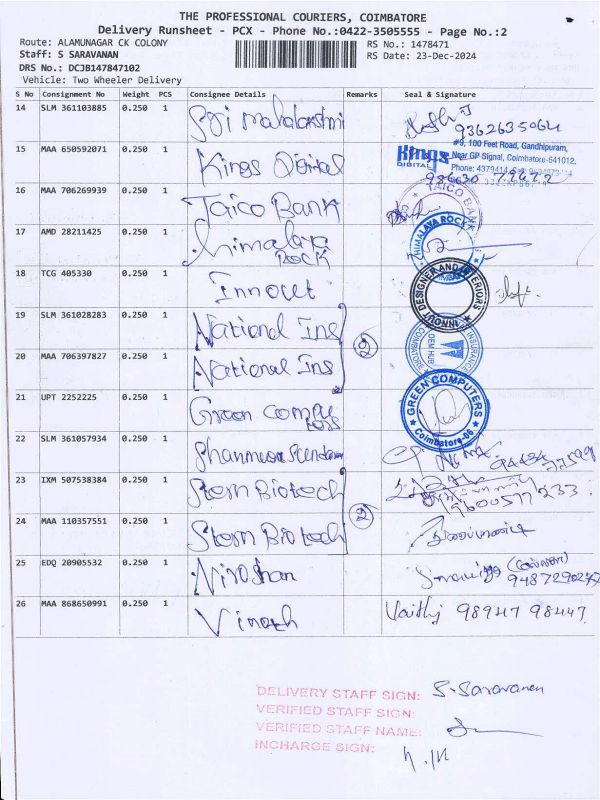 THE PROFESSIONAL COURIERS, COIMBATORE
Delivery Runsheet - PCX - Phone No.:0422-3505555 - Page No.:2
Route: ALAMUNAGAR CK COLONY RS No.: 1478471
Staff: S SARAVANAN RS Date: 23-Dec-2024
DRS No.: DCJB147847102
Vehicle: Two Wheeler Delivery
S No Consignment No Weight PCS Consignee Details Remarks Seal & Signature
14 SLM 361103885 0.250 1 Sri Mahalakshmi 9362635064
15 MAA 650592071 0.250 1 Kings Digital
Kings DIGITAL
#9, 100 Feet Road, Gandhipuram,
Near GP Signal, Coimbatore-641012.
16 MAA 706269939 0.250 1 Taico Bank TAICO BANK
17 AMD 28211425 0.250 1 Himalaya Rock HIMALAYA ROCK
18 TCG 405330 0.250 1 Innocut INNOVUT DESIGNER AND INTERIORS
19 SLM 361028283 0.250 1 National Ins 2
20 MAA 706397827 0.250 1 National Ins
21 UPT 2252225 0.250 1 Green Computers GREEN COMPUTERS Coimbatore-06
22 SLM 361057934 0.250 1
23 IXM 507538384 0.250 1 Stern Biotech 2 9600577233
24 MAA 110357551 0.250 1 Stern Biotech
25 EDQ 20905532 0.250 1 Niroshan
26 MAA 868650991 0.250 1 Vinoth Vaithi 98947 98447
DELIVERY STAFF SIGN: S. Saravanan
VERIFIED STAFF SIGN:
VERIFIED STAFF NAME:
INCHARGE SIGN: